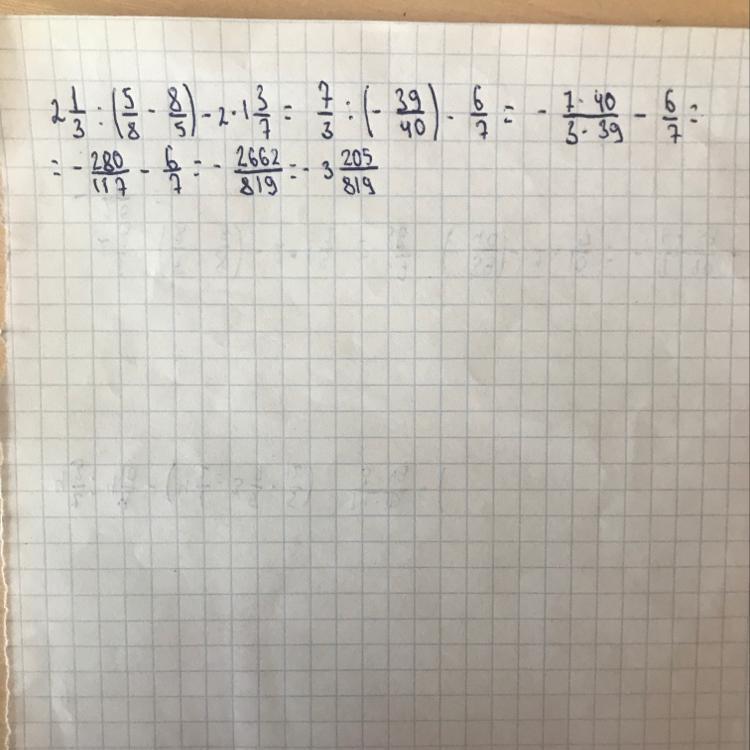 2 1/3 : (5/8 - 8/5) - 2 · 1 3/7 = 7/3 : (- 39/40) - 6/7 = - 7 · 40/3 · 39 - 6/7 =
= - 280/117 - 6/7 = - 2662/819 = - 3 205/819